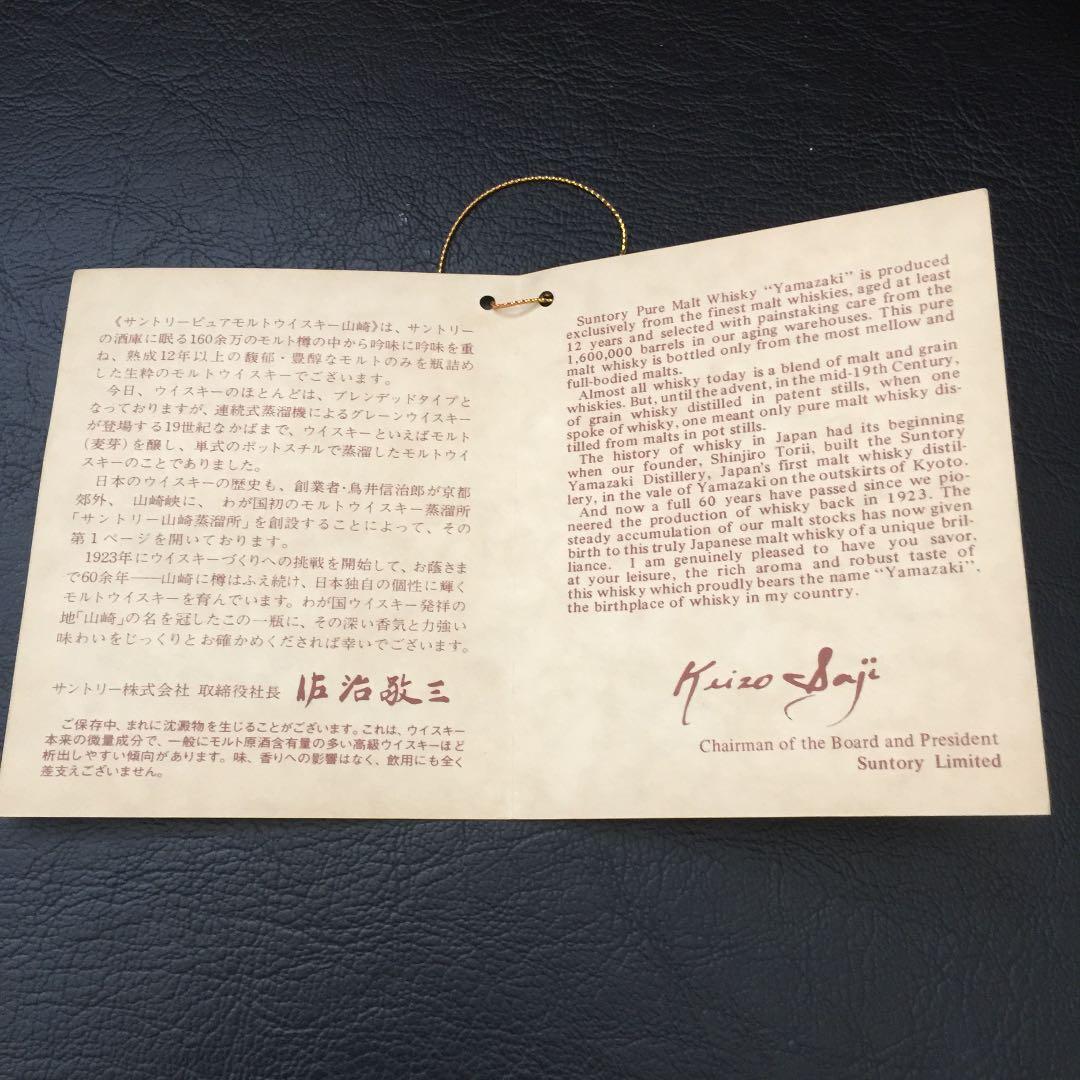 《サントリーピュアモルトウイスキー山崎》は、サントリー
の酒庫に眠る160余万のモルト樽の中から吟味に吟味を重
ね、熟成12年以上の馥郁・豊醇なモルトのみを瓶詰め
した生粋のモルトウイスキーでございます。
今日、ウイスキーのほとんどは、ブレンデッドタイプと
なっておりますが、連続式蒸溜機によるグレーンウイスキー
が登場する19世紀なかばまで、ウイスキーといえばモルト
(麦芽)を醸し、単式のポットスチルで蒸溜したモルトウイ
スキーのことでありました。
日本のウイスキーの歴史も、創業者・鳥井信治郎が京都
郊外、山崎峡に、わが国初のモルトウイスキー蒸溜所
「サントリー山崎蒸溜所」を創設することによって、その
第1ページを開いております。
1923年にウイスキーづくりへの挑戦を開始して、お蔭さま
で60余年——山崎に樽はふえ続け、日本独自の個性に輝く
モルトウイスキーを育んでいます。わが国ウイスキー発祥の
地「山崎」の名を冠したこの一瓶に、その深い香気と力強い
味わいをじっくりとお確かめくだされば幸いでございます。
サントリー株式会社 取締役社長 佐治敬三
ご保存中、まれに沈澱物を生じることがございます。これは、ウイスキー
本来の微量成分で、一般にモルト原酒含有量の多い高級ウイスキーほど
析出しやすい傾向があります。味、香りへの影響はなく、飲用にも全く
差支えございません。
Suntory Pure Malt Whisky “Yamazaki” is produced
exclusively from the finest malt whiskies, aged at least
12 years and selected with painstaking care from the
1,600,000 barrels in our aging warehouses. This pure
malt whisky is bottled only from the most mellow and
full-bodied malts.
Almost all whisky today is a blend of malt and grain
whiskies. But, until the advent, in the mid-19th Century,
of grain whisky distilled in patent stills, when one
spoke of whisky, one meant only pure malt whisky dis-
tilled from malts in pot stills.
The history of whisky in Japan had its beginning
when our founder, Shinjiro Torii, built the Suntory
Yamazaki Distillery, Japan's first malt whisky distil-
lery, in the vale of Yamazaki on the outskirts of Kyoto.
And now a full 60 years have passed since we pio-
neered the production of whisky back in 1923. The
steady accumulation of our malt stocks has now given
birth to this truly Japanese malt whisky of a unique bril-
liance. I am genuinely pleased to have you savor,
at your leisure, the rich aroma and robust taste of
this whisky which proudly bears the name “Yamazaki”,
the birthplace of whisky in my country.
Keizo Saji
Chairman of the Board and President
Suntory Limited